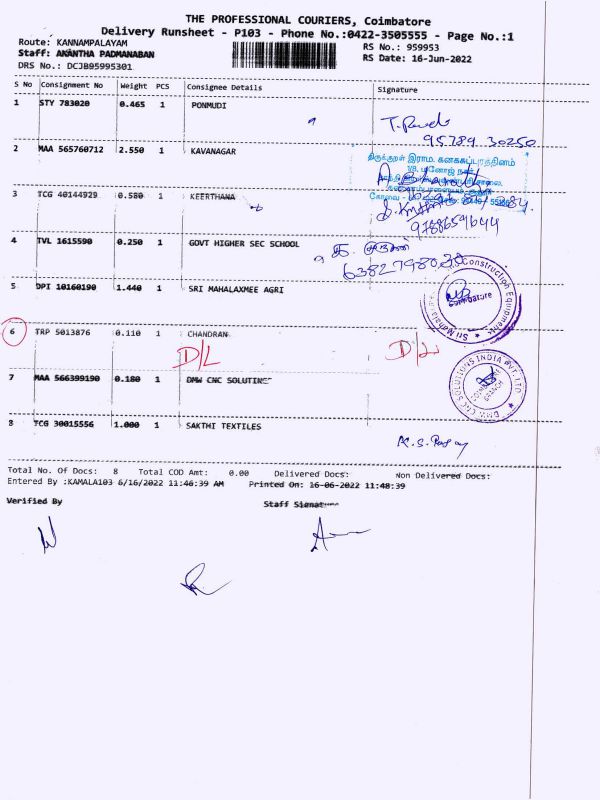 THE PROFESSIONAL COURIERS, Coimbatore
Delivery Runsheet - P103 - Phone No.:0422-3505555 - Page No.:1
Route: KANNAMPALAYAM RS No.: 959953
Staff: AKANTHA PADMANABAN RS Date: 16-Jun-2022
DRS No.: DCJB95995301
S No Consignment No Weight PCS Consignee Details Signature
1 STY 783020 0.465 1 PONMUDI
95789 30250
2 MAA 565760712 2.550 1 KAVANAGAR
திருக்குறள் இராம. கனகசுப்புரத்தினம்
3 TCG 40144929 0.580 1 KEERTHANA
9788659644
4 TVL 1615590 0.250 1 GOVT HIGHER SEC SCHOOL
5 DPI 10160190 1.440 1 SRI MAHALAXMEE AGRI
Construction Equipments
Coimbatore
6 TRP 5013876 0.110 1 CHANDRAN
D/L D/L
7 MAA 566399190 0.180 1 DMW CNC SOLUTINS
DMW CNC SOLUTIONS INDIA PVT. LTD
COIMBATORE
BRANCH
8 TCG 30015556 1.000 1 SAKTHI TEXTILES
Total No. Of Docs: 8 Total COD Amt: 0.00 Delivered Docs: Non Delivered Docs:
Entered By :KAMALA103 6/16/2022 11:46:39 AM Printed On: 16-06-2022 11:48:39
Verified By Staff Signature